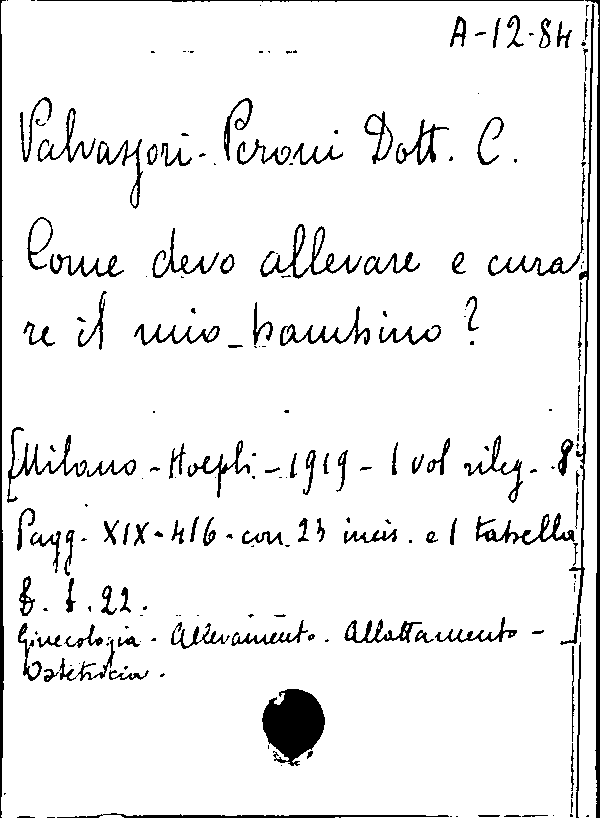 A-12-84
Valvassori-Peroni Dott. C.
Come devo allevare e cura
re il mio bambino?
[Milano - Hoepli - 1919 - 1 vol rileg. 8°
Pagg. XIX-416. con 23 incis. e 1 tabella
f. t. 22.
Ginecologia. Allevamento. Allattamento -
Ostetricia.